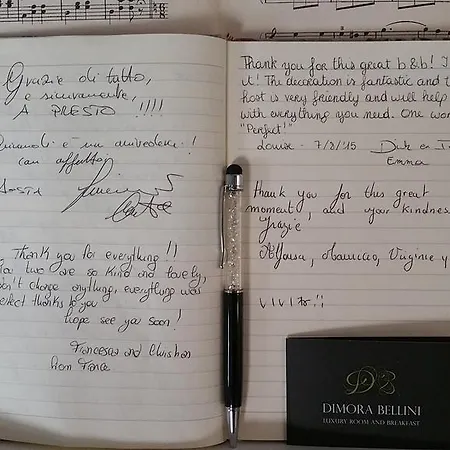 Grazie di tutto,
e sicuramente,
A PRESTO !!!!
Quindi è un arrivederci!
con affetto
Thank you for everything !!
You two are so kind and lovely,
don't change anything, everything was
perfect thanks to you
hope see you soon!
Francesca and Christian
from France
Thank you for this great b&b! I
it! The decoration is fantastic and t
host is very friendly and will help
with everything you need. One wor
"Perfect!"
Louise - 7/8/'15 Dirk en
Emma
Thank you for this great
moment, and your kindness
Grazie
Mauricio, Virginie y
DB
DIMORA BELLINI
LUXURY ROOM AND BREAKFAST